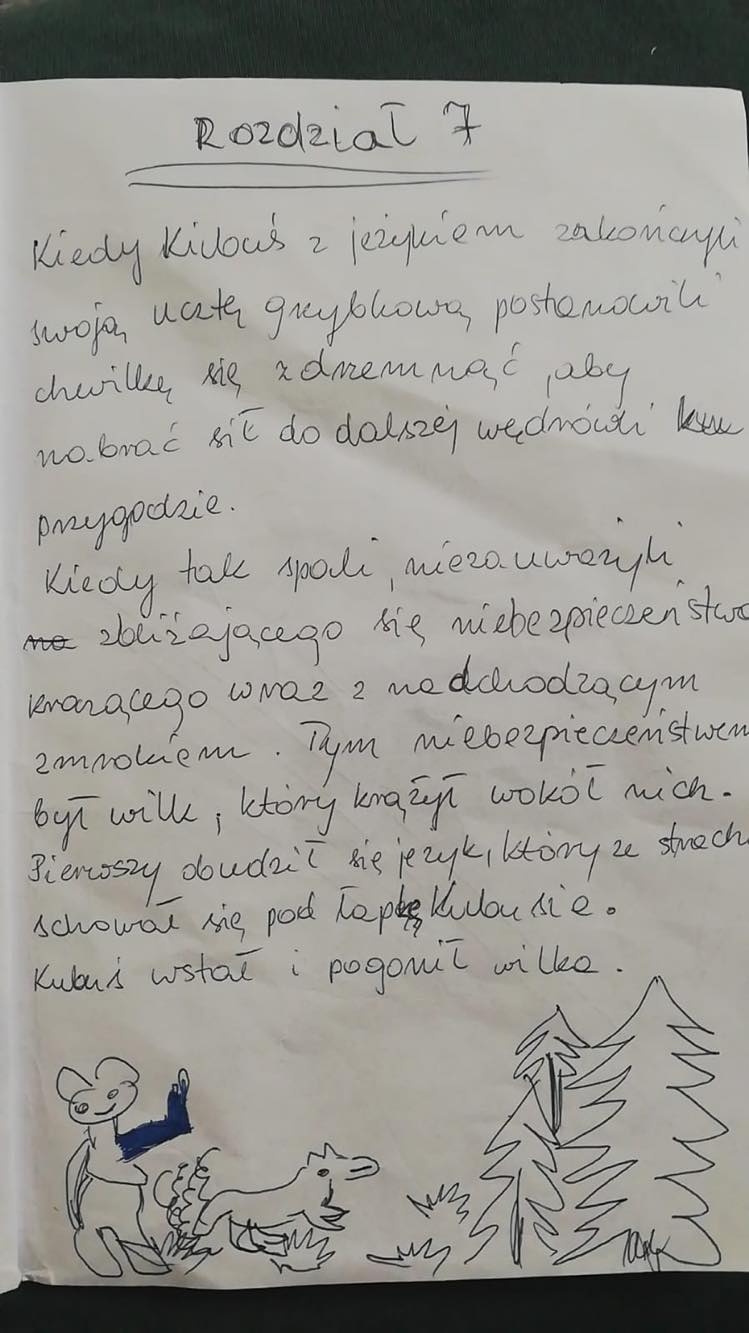 Rozdział 7
Kiedy Kubuś z jeżykiem zakończyli
swoją ucztę grzybkową postanowili
chwilkę się zdrzemnąć, aby
nabrać sił do dalszej wędrówki
przygodzie.
Kiedy tak spali, niezauważyli
zbliżającego się niebezpieczeństwa
krazącego wraz z nadchodzącym
zmrokiem. Tym niebezpieczeństwem
był wilk, który krążył wokół nich.
Pierwszy obudził się jezyk, który ze strach
schował się pod łapkę Kubusia.
Kubuś wstał i pogonił wilka.